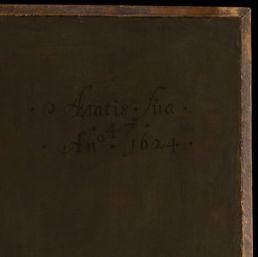 Ætatis · suæ ·
· 47 ·
· Anº · 1624 ·